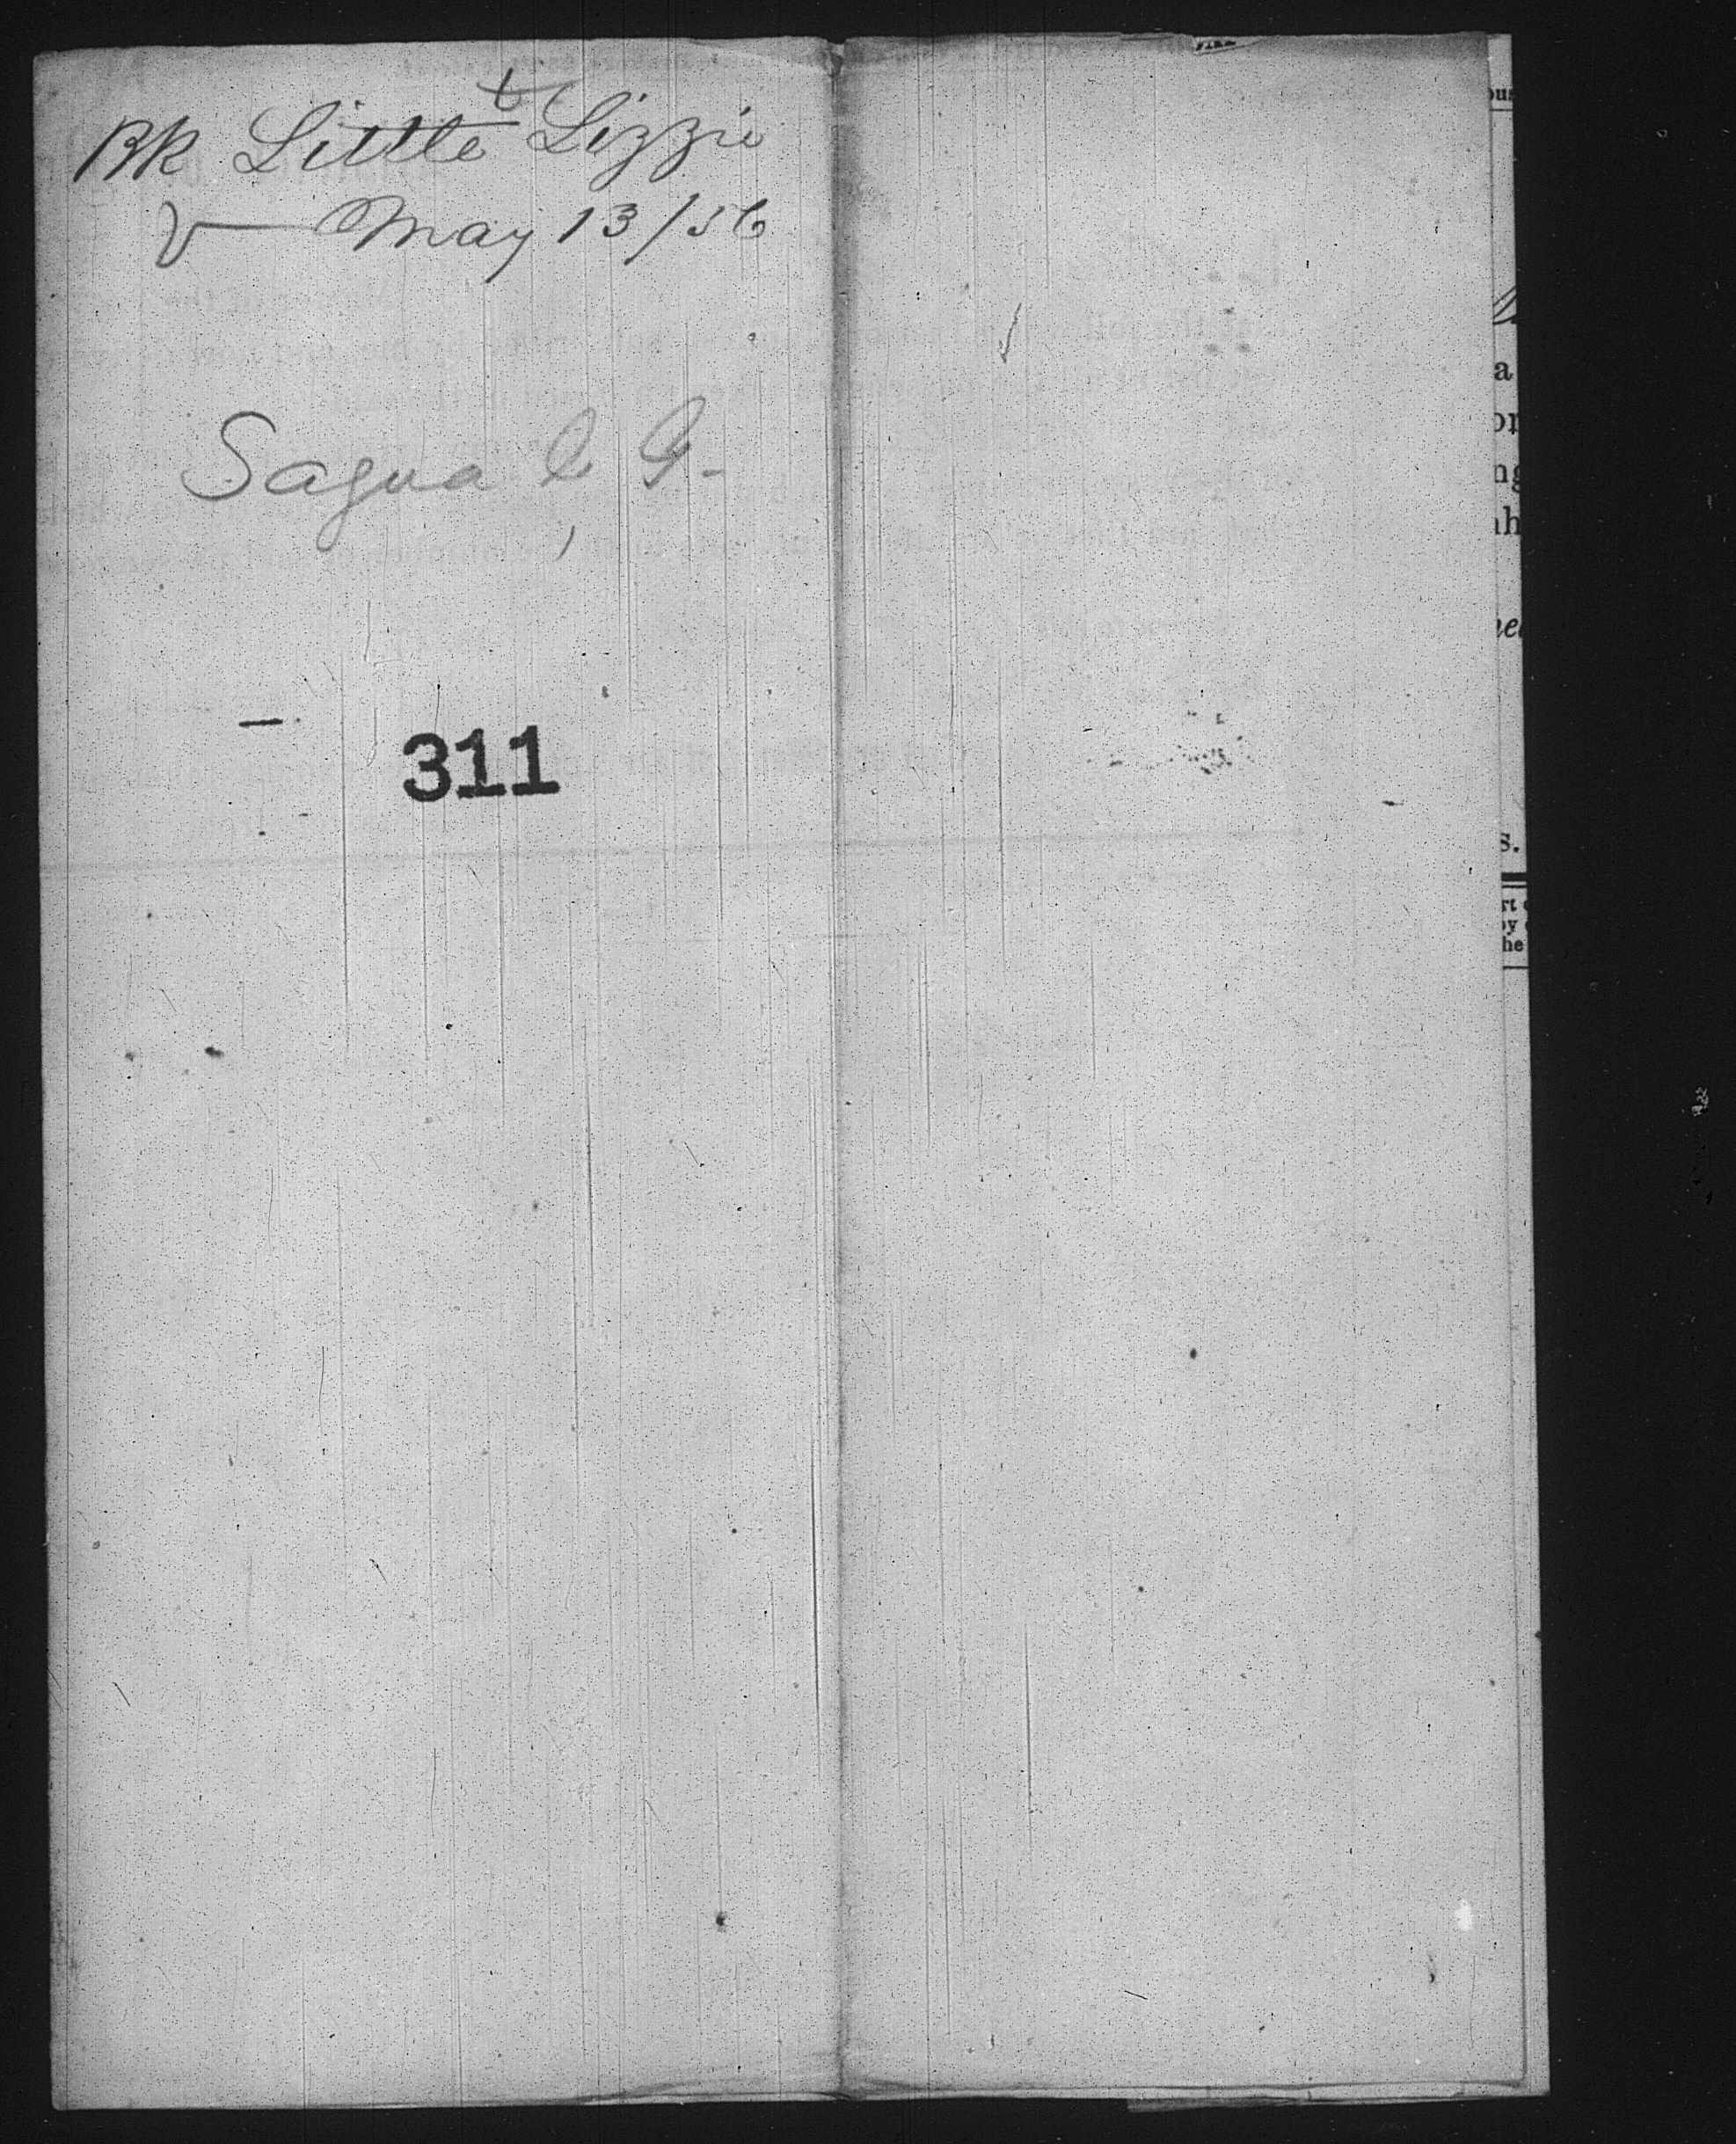 Bk Little Lizzie
May 13/56
Sagua l G.
311